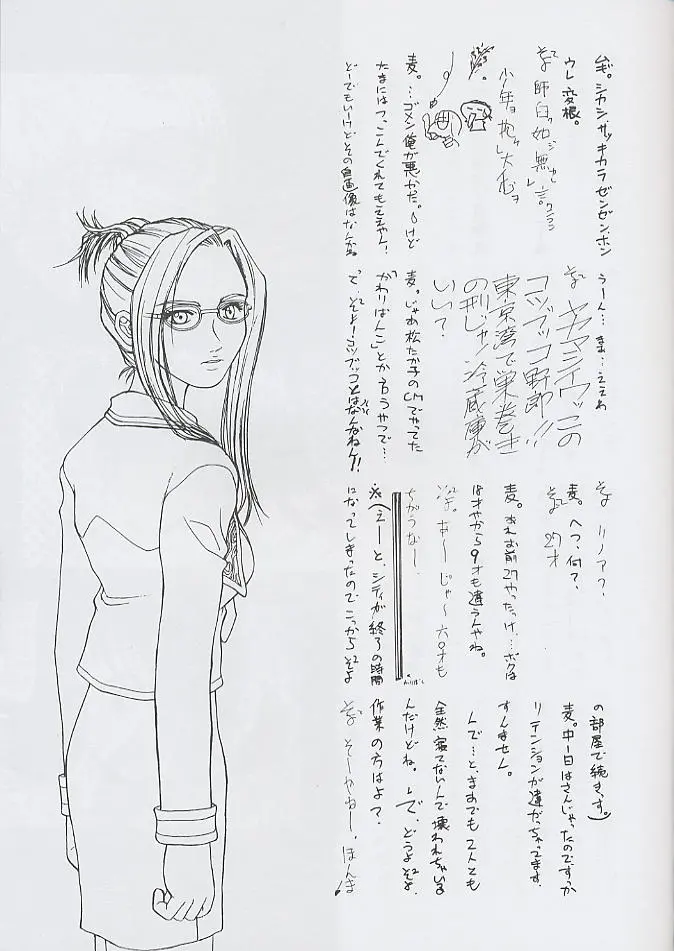 ムギ。シカシ、サッキカラゼンゼン、ホン
ウレ変根。
少年ョ抱ヶ大むヲ
麦。…ゴメン俺が悪かだ。けど
たまにはつっこんでくれてもええやん!
どーでもいーけどその自画像はなんや。
うーん…まぁ…ええわ
ヤヤシイウッこの
コッブッコ野郎!!
東京湾で巣巻き
の刑じゃ!冷蔵庫が
いい?
麦。じゃあ松たか子のCMでやってた
「がわりばんこ」とか言うやつで…
で、ぞよ!コッブッコとはなんなねん!!
ぞよ リノア?
麦。へっ、何?
ぞよ 27才
麦。あれお前27やったっけ…ボクは
18才やから9才も違うんやね。
ぞよ。あ〜じゃ〜六〇才も
ちがうなー。
※(えーと、シティが終了の時間
になってしまったのでこっからぞよ
の部屋で続きっす。)
麦。中一日はさんじゃったのですか
リテンションが違がっちゃってます、
すんません。
んで…と、まあでも2人とも
全然寝てないんで壊われちゃいる
んだけどね。で、どうよぞよ、
作業の方はよ?
ぞよ そーやねー、ほんま!